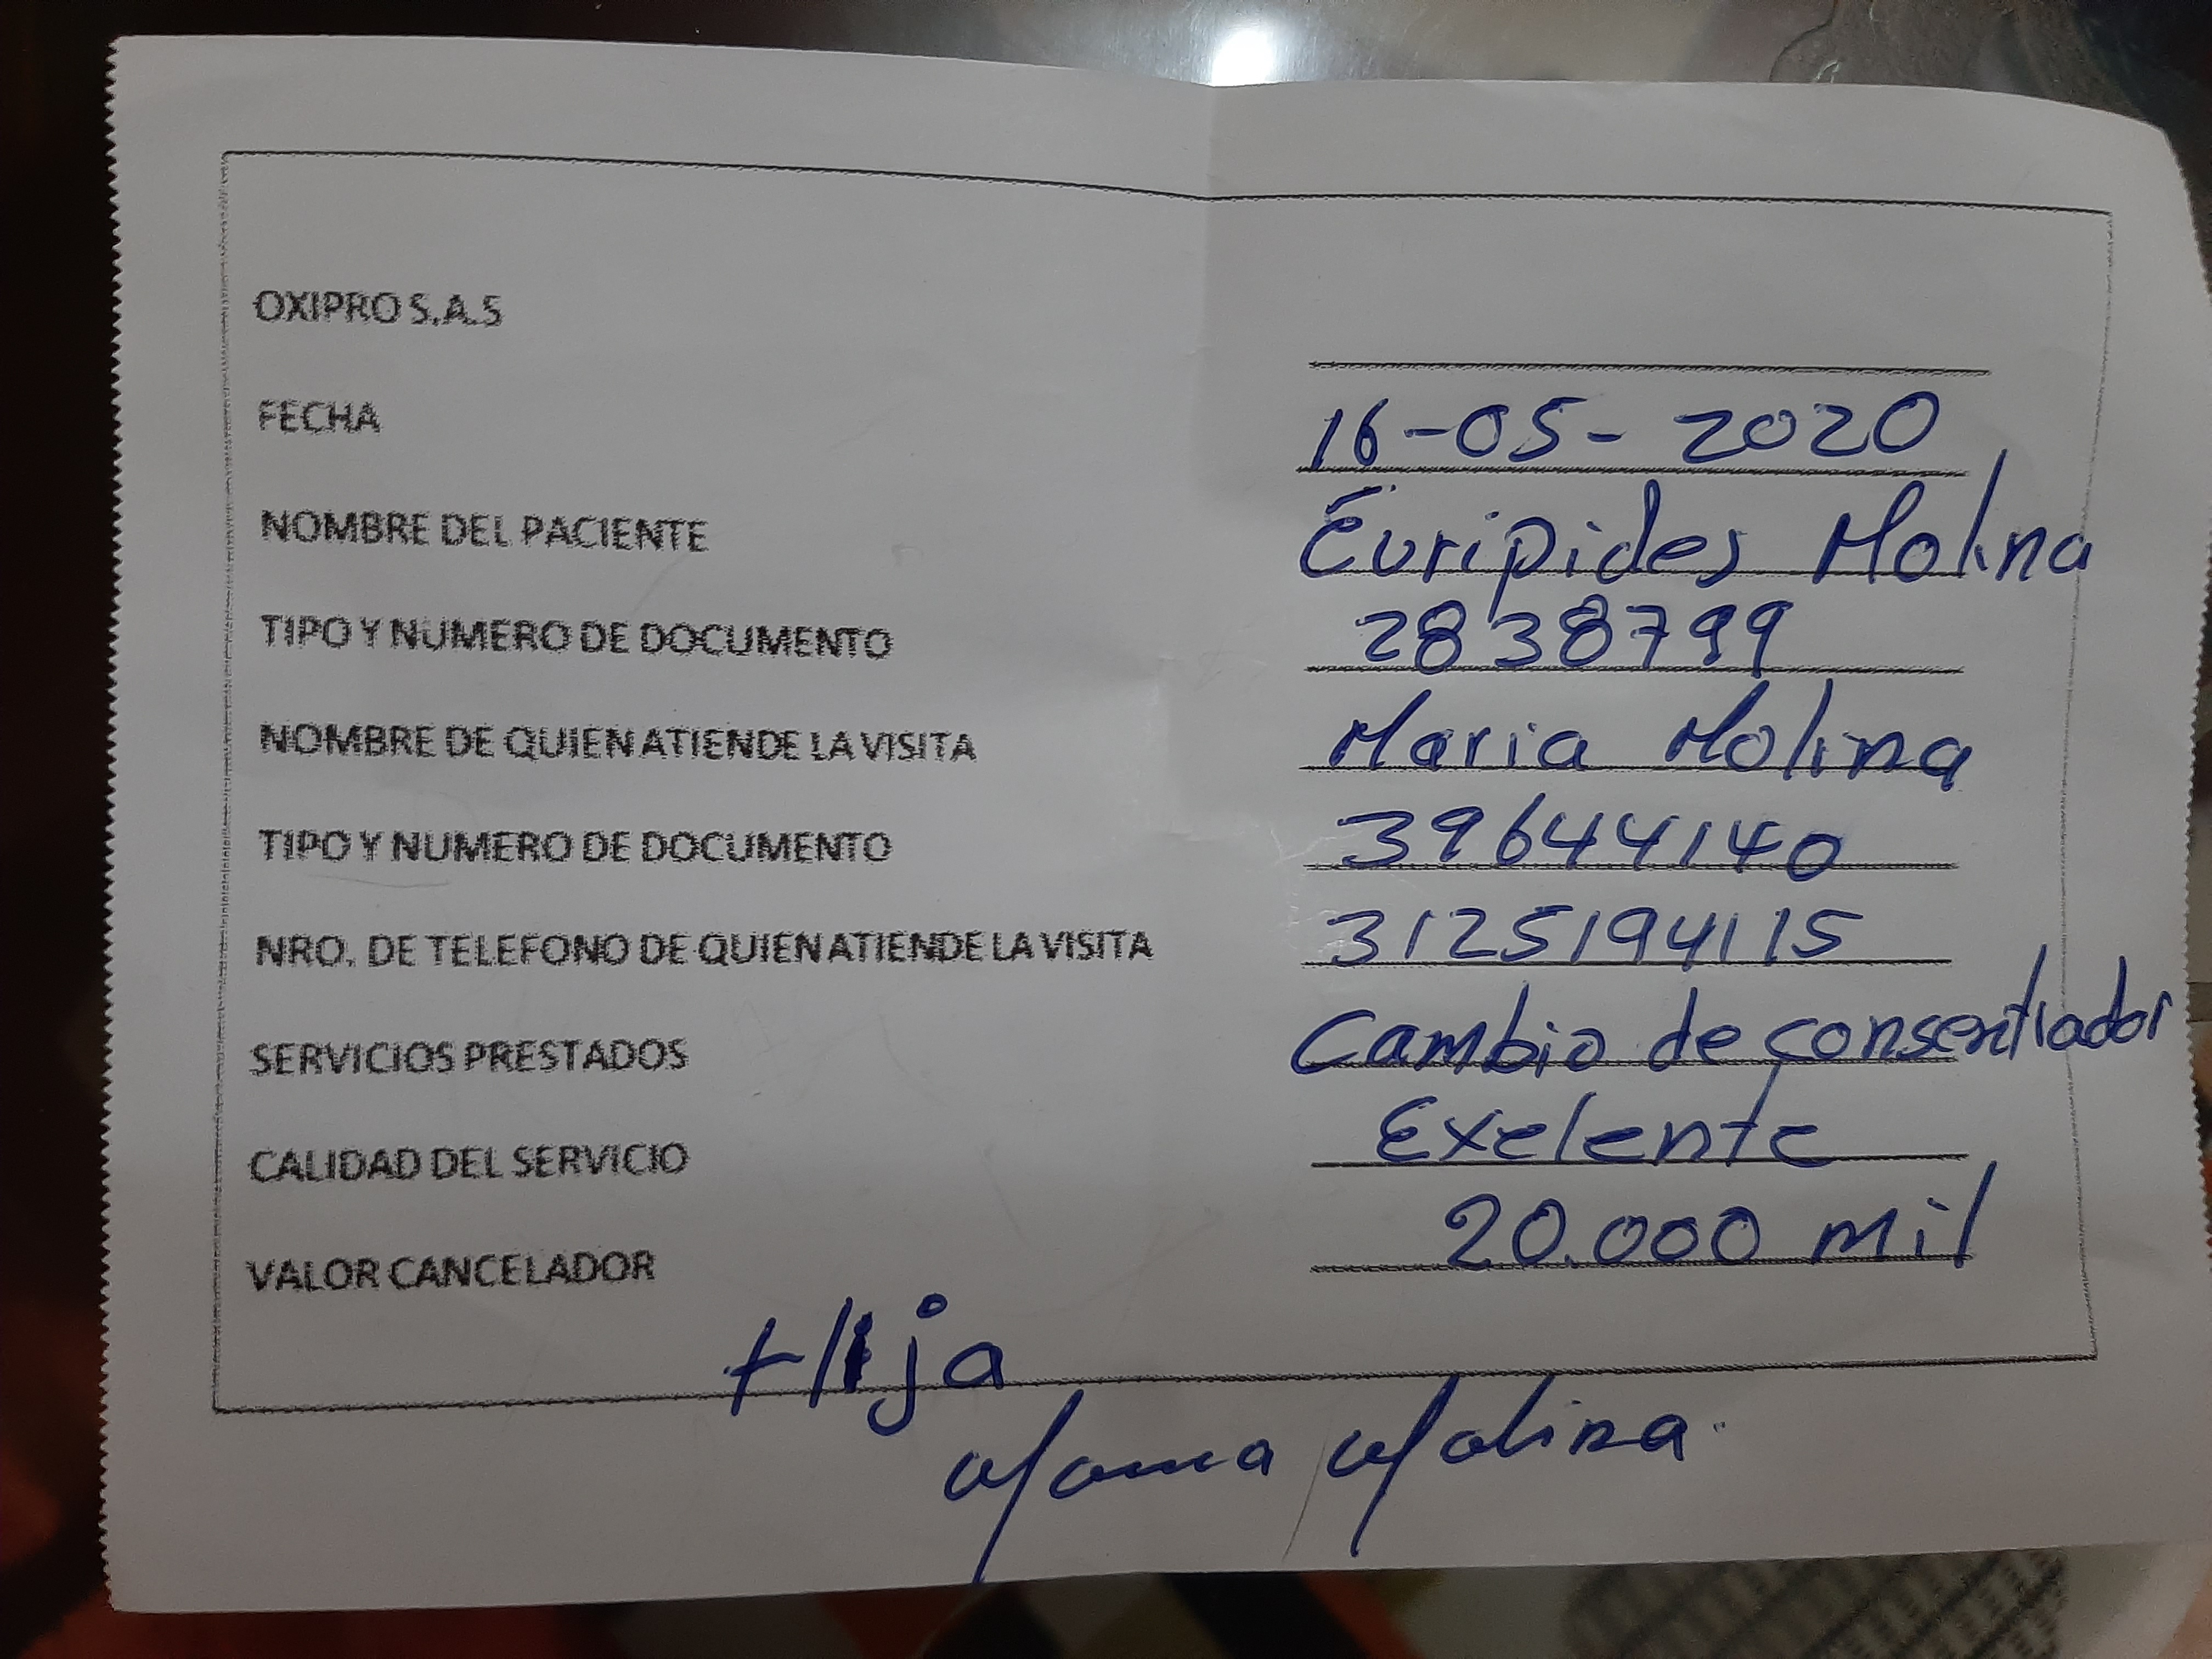 OXIPRO S.A.S
FECHA 16-05-2020
NOMBRE DEL PACIENTE Euripides Molina
TIPO Y NUMERO DE DOCUMENTO 2838799
NOMBRE DE QUIEN ATIENDE LA VISITA Maria Molina
TIPO Y NUMERO DE DOCUMENTO 39644140
NRO. DE TELEFONO DE QUIEN ATIENDE LA VISITA 3125194115
SERVICIOS PRESTADOS Cambio de consentrador
CALIDAD DEL SERVICIO Exelente
VALOR CANCELADOR 20.000 mil
Hija
Maria Molina